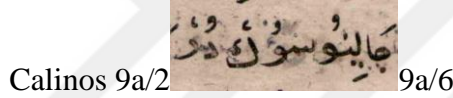 Calinos 9a/2 جَالِينُوسوُكْ 9a/6